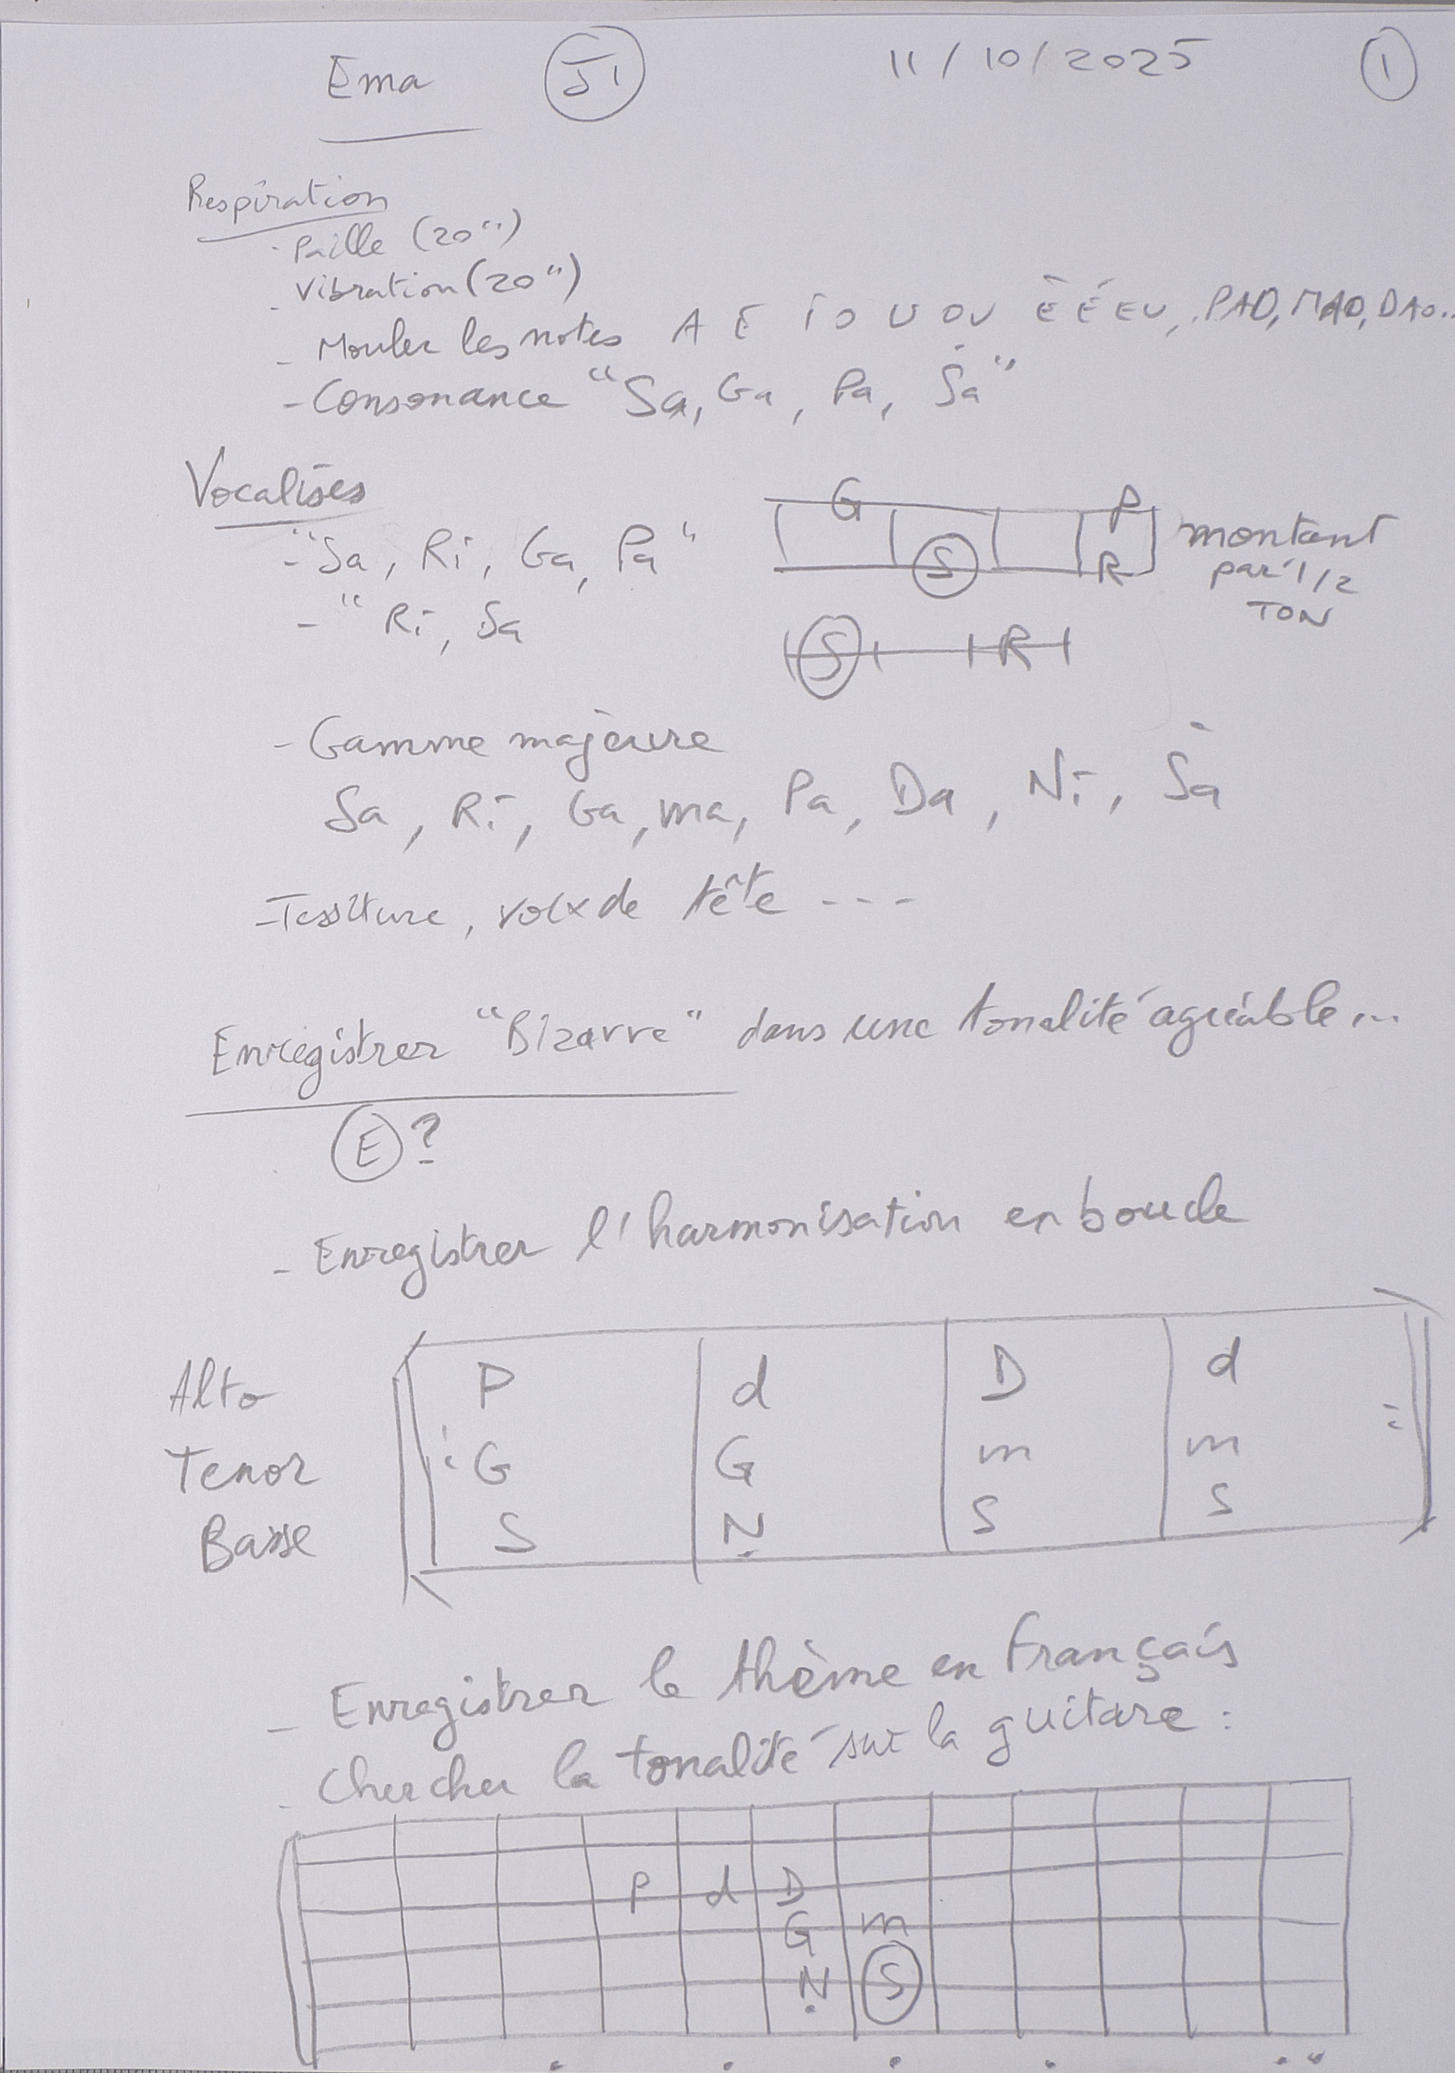 Ema J1 11/10/2025 1
Respiration
- Paille (20")
- Vibration (20")
- Mouler les notes A E i O U OU È É EU, PAO, MAO, DAO..
- Consonance "Sa, Ga, Pa, Ṡa"
Vocalises
- "Sa, Ri, Ga, Pa"
G P
S R
montant
par 1/2
TON
- "Ri, Sa
S R
- Gamme majeure
Sa, Ri, Ga, ma, Pa, Da, Ni, Ṡa
- Tessiture, voix de tête ---
Enregistrer "Bizarre" dans une tonalité agréable...
E ?
- Enregistrer l'harmonisation en boucle
Alto P d D d
Tenor : G G m m :
Basse S Ṇ S S
- Enregistrer le thème en Français
- Chercher la tonalité sur la guitare :
P d D
G m
Ṇ S